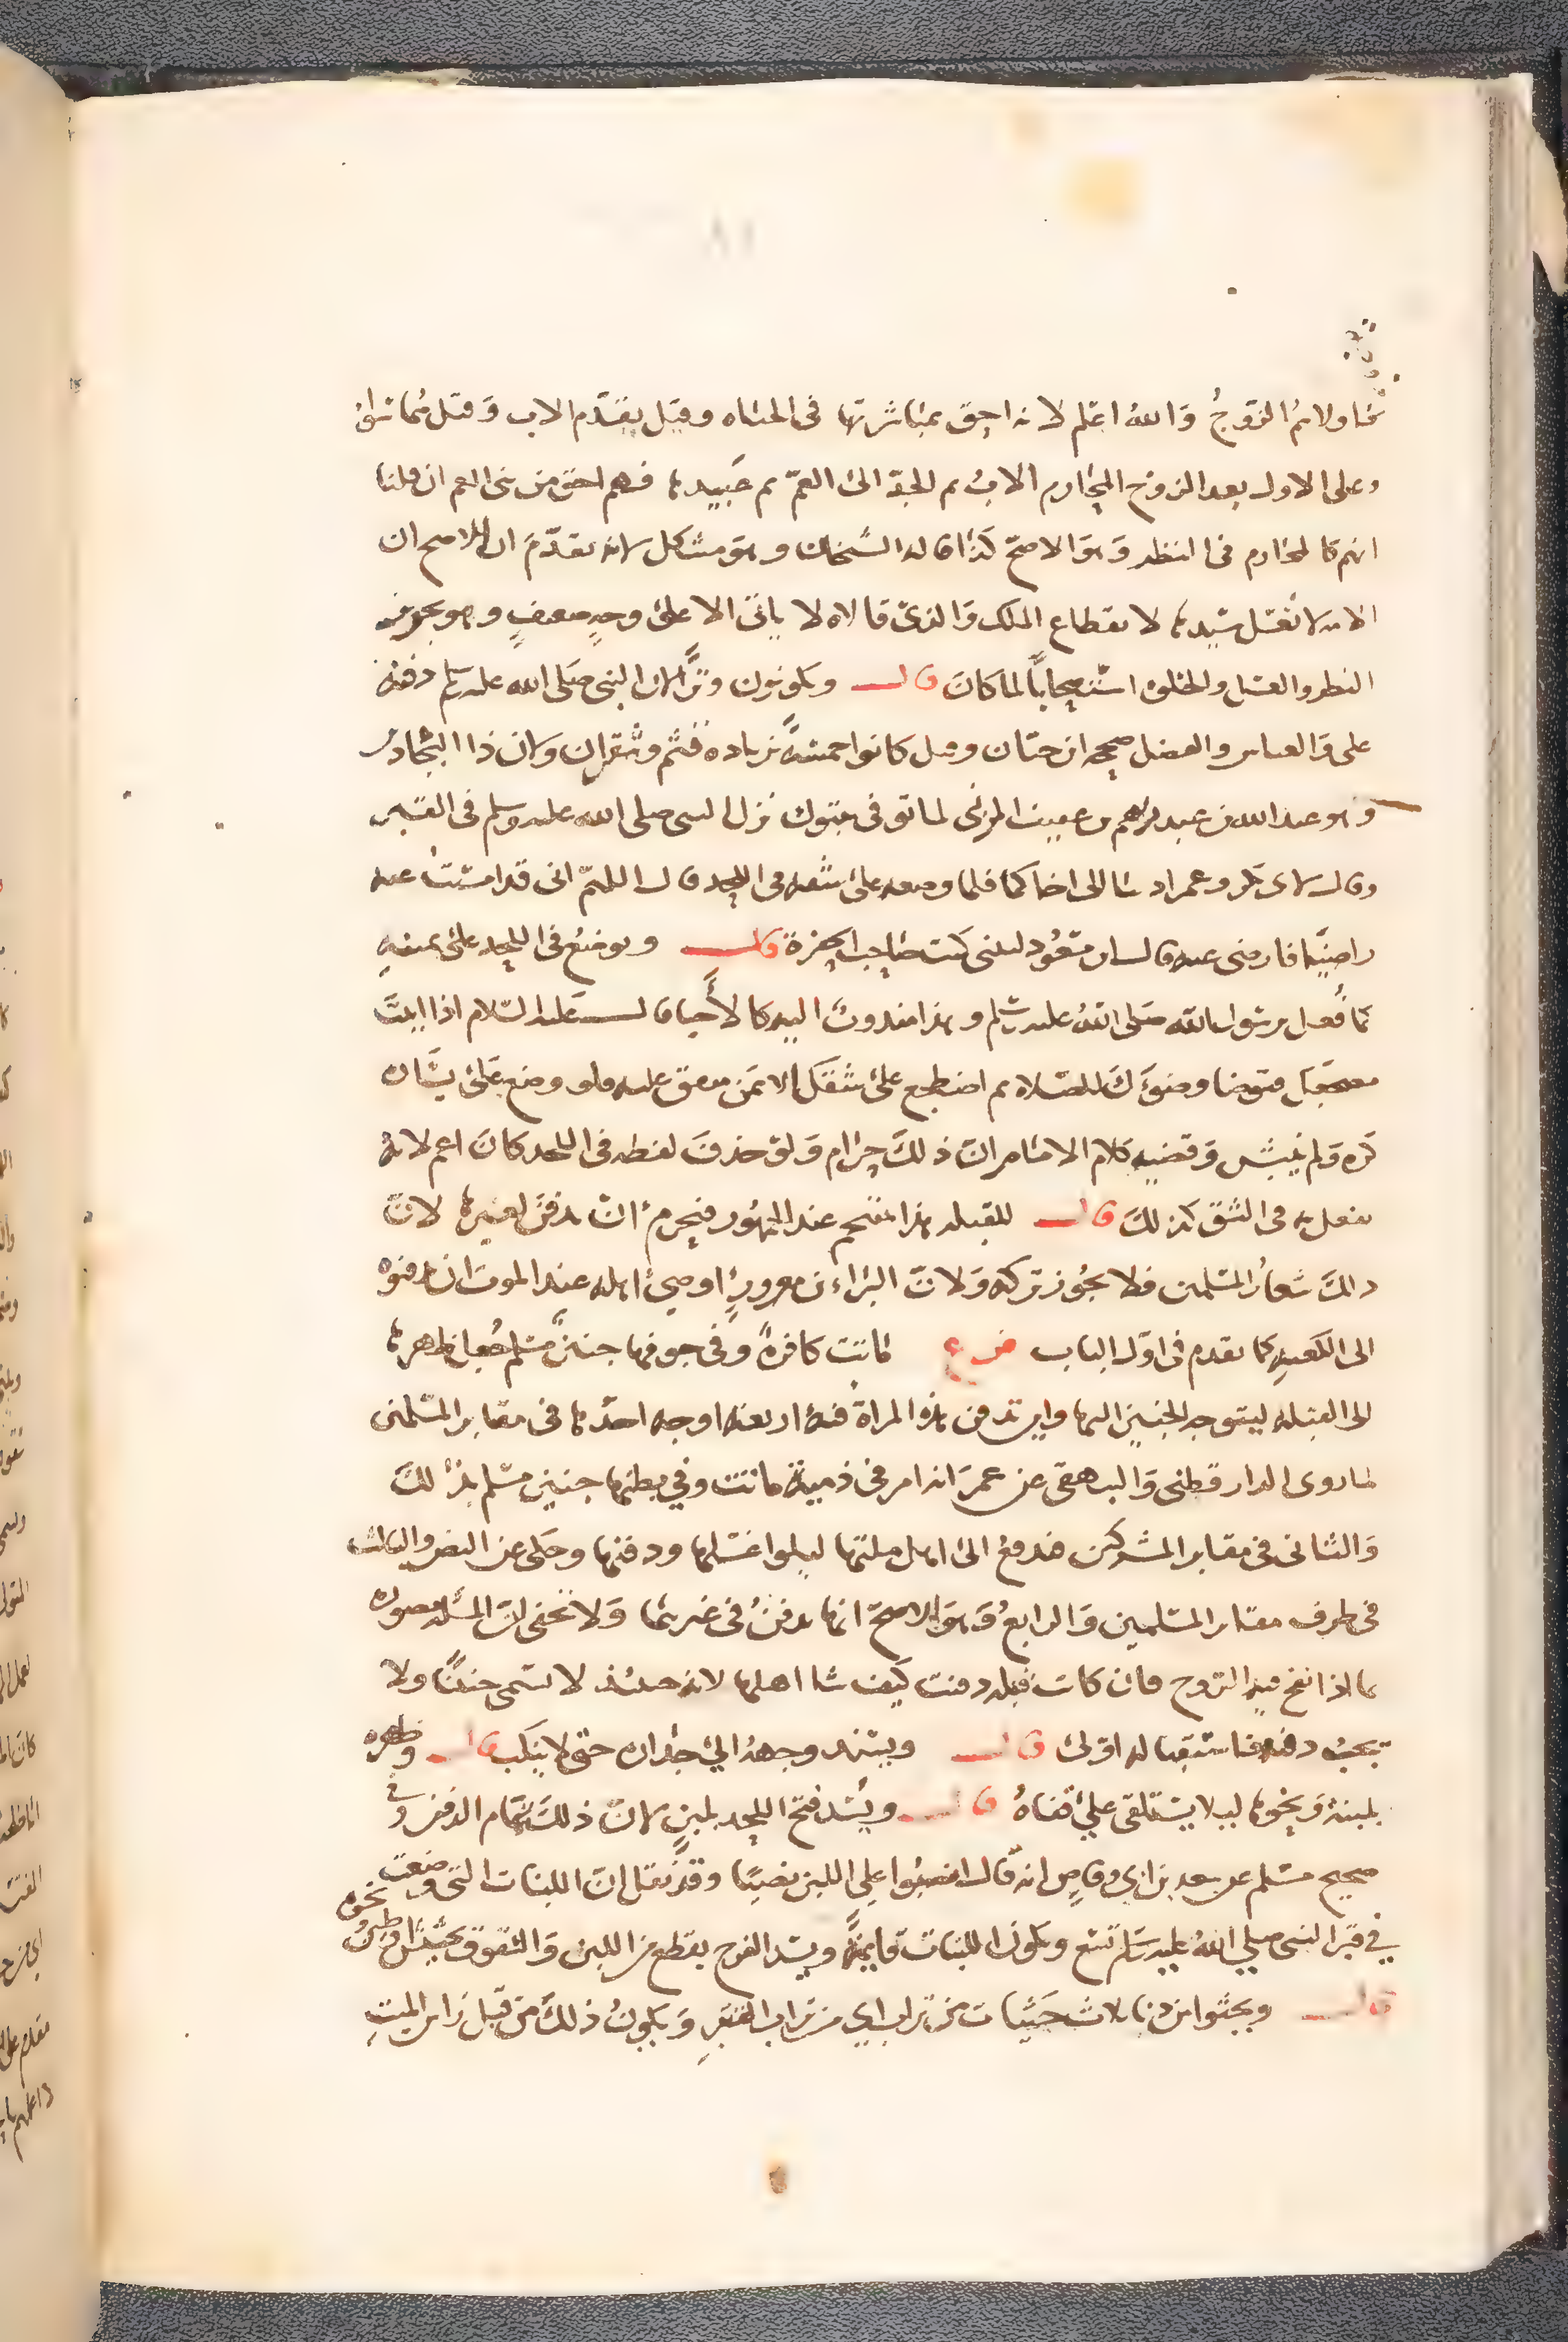 فاولاهم الزوج والله اعلم لانه احق بمباشرتها في الحياه وقيل يقدم الاب وقيل هما سواء
وعلى الاول بعد الزوج المحارم الاب ثم الجد الى العم ثم عبيدها فهم احق من بني العم ان قلنا
انهم كالمحارم في النظر وهو الاصح كذا قاله الشيخان وهو مشكل لانه تقدم ان الاصح ان
الامه لا تغسل سيدها لانقطاع الملك والذي قالاه لا ياتي الا على وجه ضعيف وهو يجوز
النظر والغسل والخلوه استصحابا لما كان قال ويكونون وترا لان النبي صلى الله عليه وسلم دفنه
علي والعباس والفضل صححه ابن حبان وقيل كانوا خمسة بزيادة قثم وشقران ولان ذا البجادين
وهو عبد الله بن عبد نهم بن عفيف المزني لما توفي بتبوك نزل النبي صلى الله عليه وسلم في القبر
وقال لابي بكر وعمر ادنيا الي اخاكما فلما وضعه على شقه في اللحد قال اللهم اني قد امسيت عنه
راضيا فارض عنه قال ابن مسعود ليتني كنت صاحب الحفرة قال ويوضع في اللحد على يمينه
كما فعل برسول الله صلى الله عليه وسلم وهذا مندوب اليه كالاحيا قال عليه السلام اذا اتيت
مضجعك فتوضا وضوءك للصلاه ثم اضطجع على شقك الايمن متفق عليه فلو وضع على يساره
كره ولم ينبش وقضيه كلام الامام ان ذلك حرام ولو حذف لفظه في اللحد كان اعم لانه
يفعل به في الشق كذلك قال للقبله هذا متحتم عند الجمهور فيحرم ان يدفن لغيرها لان
ذلك شعار المسلمين فلا يجوز تركه ولان البراء بن معرور اوصى اهله عند الموت ان يدفنوه
الى الكعبه كما تقدم في اول الباب فرع ماتت كافرة وفي جوفها جنين مسلم جعل ظهرها
الى القبله ليتوجه الجنين اليها واين تدفن هذه المراة فيه اربعة اوجه احدها في مقابر المسلمين
لما روى الدارقطني والبيهقي عن عمر انه امر في ذمية ماتت وفي بطنها جنين مسلم بذلك
والثاني في مقابر المشركين فتدفع الى اهل ملتها ليلوا غسلها ودفنها وحكي عن النص والثالث
في طرف مقابر المسلمين والرابع وهو الاصح انها تدفن في غيرهما ولا يخفى ان المسئله مصوره
بما اذا نفخ فيه الروح فان كانت قبله دفنت كيف شا اهلها لانه حينئذ لا يسمى جنينا ولا
يجب دفنه فاستقباله اولى قال ويسند وجهه الى جداره حتى لا ينكب قال وظهره
بلبنة ونحوها ليلا يستلقي على قفاه قال ويسد فتح اللحد بلبن لان ذلك تمام الدفن وفي
صحيح مسلم عن سعد بن ابي وقاص انه قال انصبوا علي اللبن نصبا وقد نقل ان اللبنات التي وضعت
في قبر النبي صلى الله عليه وسلم تسع ويكون اللبنات قايمة ويسد الفرج بقطع من اللبن والشقوق بحشيش او طين ونحوه
قال ويحثوا من دنا ثلاث حثيات من تراب اي من تراب القبر ويكون ذلك من قبل راس الميت